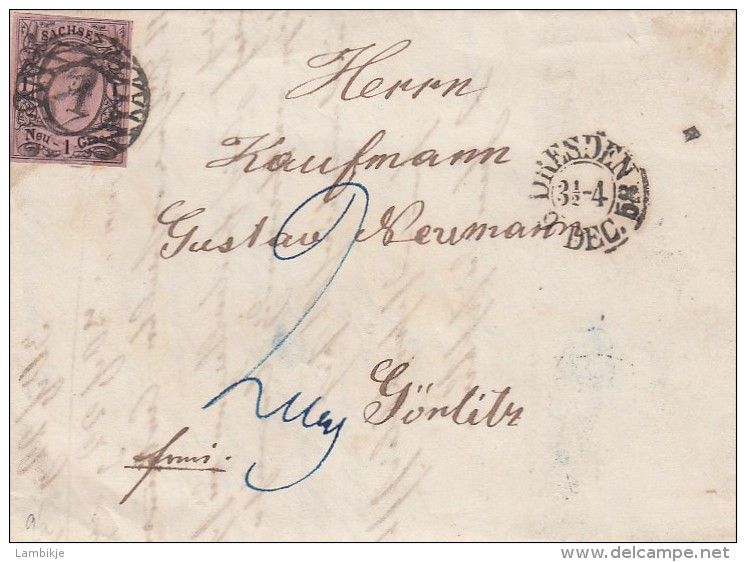 SACHSEN
1
Neu - 1 Gr
Herrn
Kaufmann
Gustav Neumann
DRESDEN
3½-4
DEC. 58
Görlitz
franco.
Lambikje
©delcampe.net